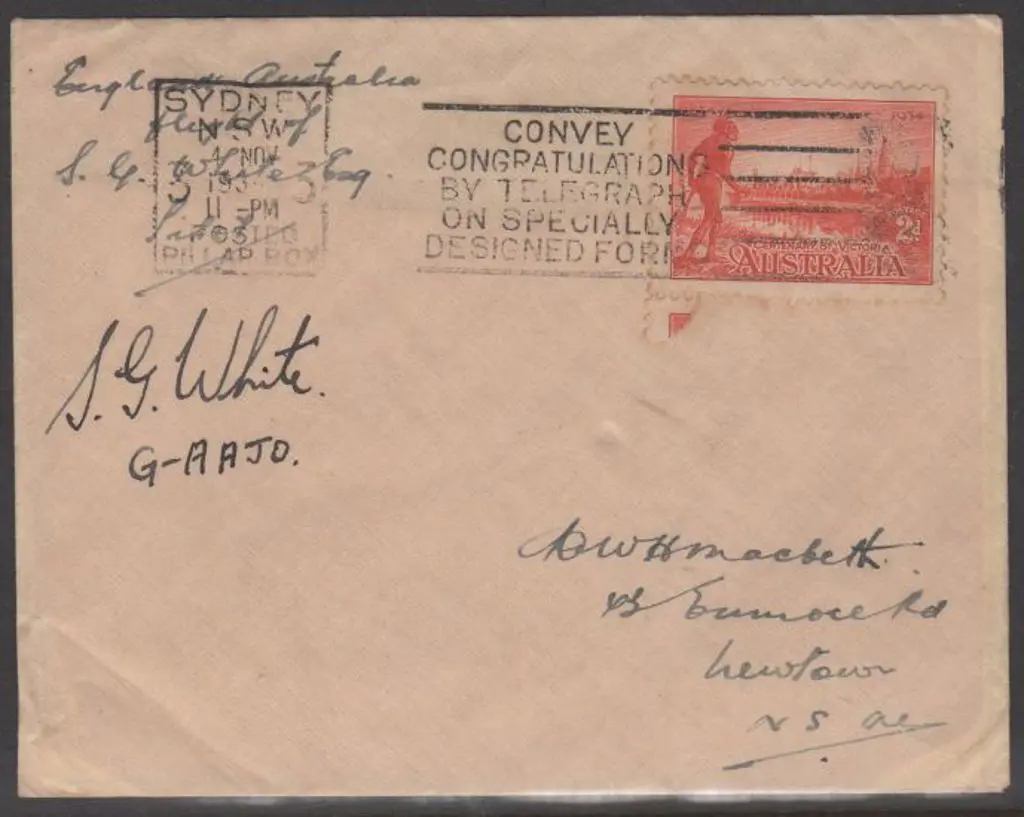 England Australia
flight of
S. G. White Esq
SYDNEY
N.S.W
4 NOV
193
11 -PM
POSTED
PILLAR BOX
CONVEY
CONGRATULATIONS
BY TELEGRAPH
ON SPECIALLY
DESIGNED FORM
1934
2
CENTENARY OF VICTORIA
AUSTRALIA
S. G. White.
G-AAJO.
WH Macbeth.
Enmore Rd
Newtown
N S W